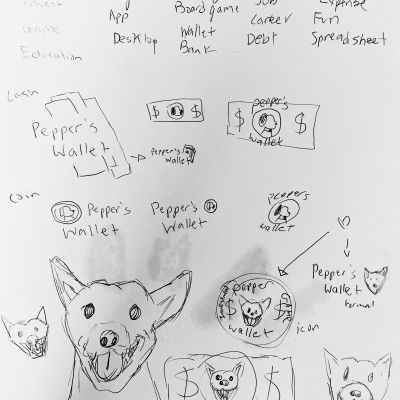 Invest App Board game Job Expense
Game Desktop Wallet Career Fun
Education Bank Debt Spreadsheet
Cash
Pepper's
Wallet
$ $
Pepper's
Wallet
$ pepper's $
wallet
Coin
Pepper's
Wallet
Pepper's
Wallet
peppers
wallet
pepper
$ $
wallet
GAME
icon
Pepper's
Wallet
formal
$ $